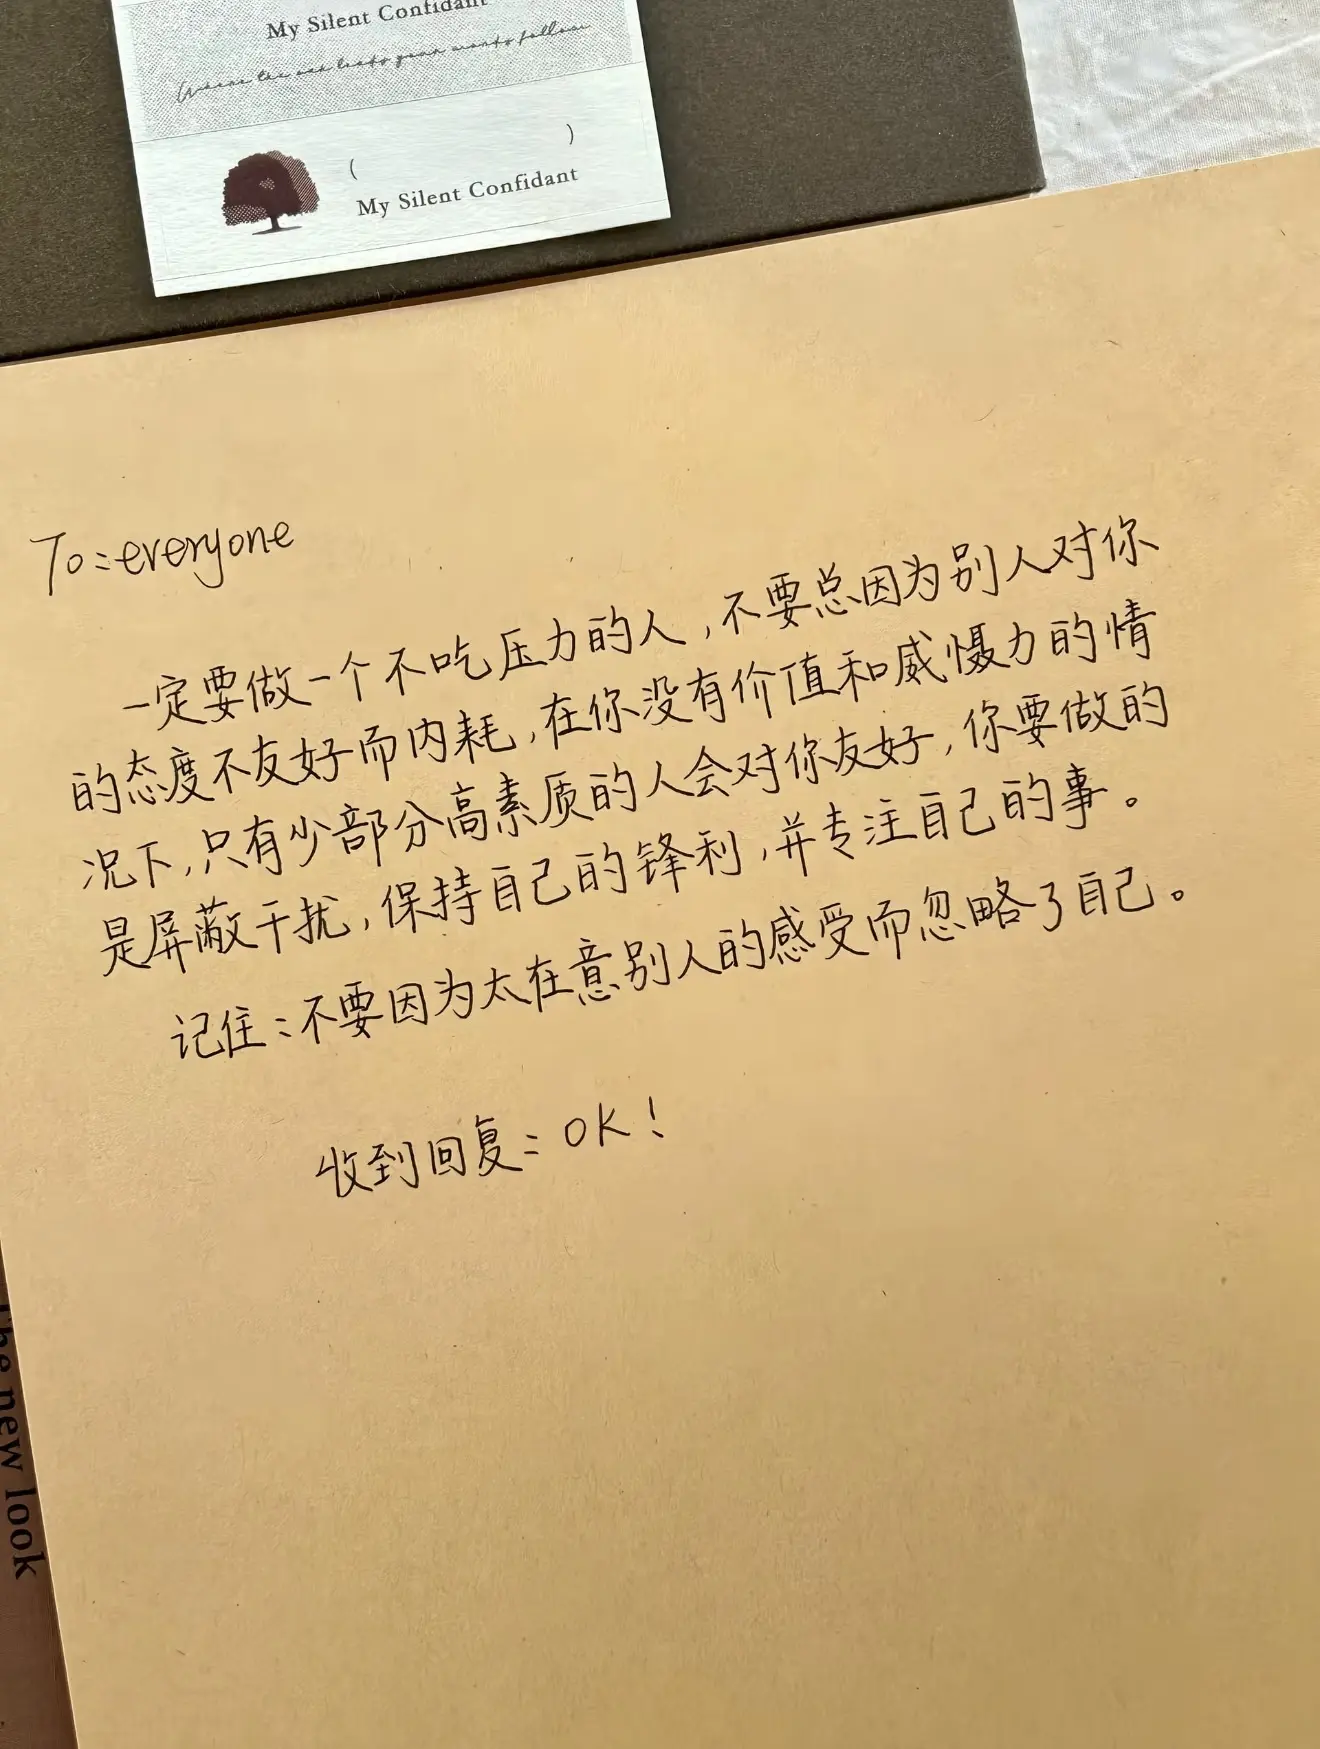 My Silent Confidant
( )
My Silent Confidant
To:everyone
一定要做一个不吃压力的人,不要总因为别人对你
的态度不友好而内耗,在你没有价值和威慑力的情
况下,只有少部分高素质的人会对你友好,你要做的
是屏蔽干扰,保持自己的锋利,并专注自己的事。
记住:不要因为太在意别人的感受而忽略了自己。
收到回复:OK!
The new look